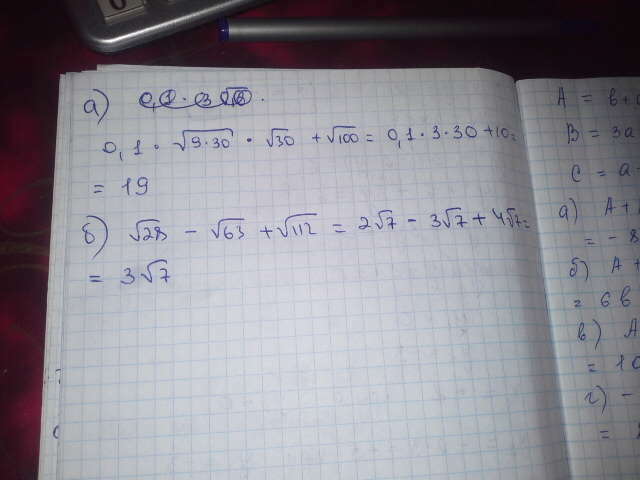 а)
0,1 · √9·30 · √30 + √100 = 0,1 · 3 · 30 + 10 =
= 19
б) √28 − √63 + √112 = 2√7 − 3√7 + 4√7 =
= 3√7
A = b + 
B = 3a
C = a -
а) A +
= - 8
б) A +
= 6b
в) A
= 10
г) -
=